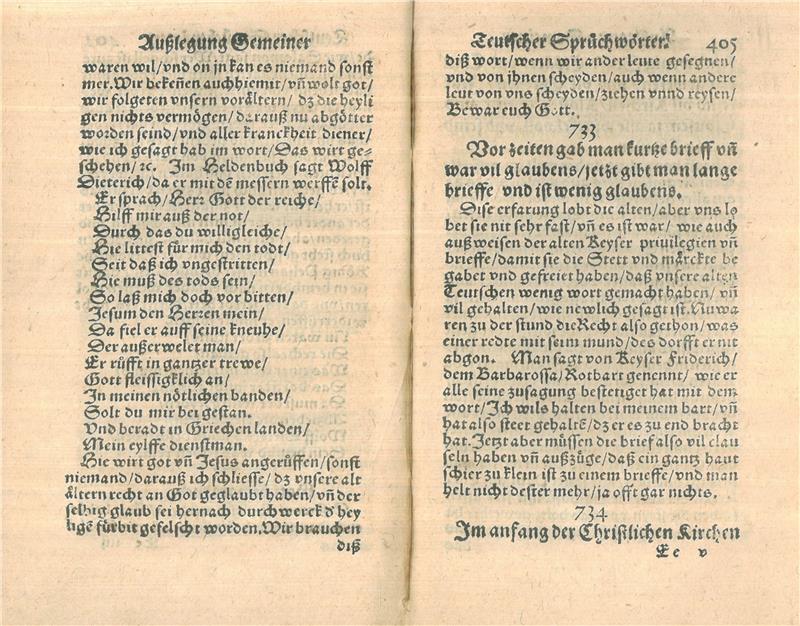 Außlegung Gemeiner
waren wil/vnd on jn kan es niemand sonst
mer. Wir bekeñen auch hiemit/ vñ wolt got/
wir folgeten vnsern vorältern/ dz die heyli
gen nichts vermögen/ darauß nu abgötter
worden seind/vnd aller kranckheit diener/
wie ich gesagt hab im wort/Das wirt ge-
schehen/ꝛc. Im Heldenbuch sagt Wolff
Dieterich/da er mit dẽ messern werffẽ solt.
Er sprach/Herr Gott der reiche/
Hilff mir auß der not/
Durch das du williglɩche/
Hie littest für mich den todt/
Seit daß ich vngestritten/
Hie muß des tods sein/
So laß mich doch vor bitten/
Jesum den Herren mein/
Da fiel er auff seine kneuhe/
Der außerwelet man/
Er rüfft in gantzer trewe/
Gott fleissigklich an/
In meinen nötlichen banden/
Solt du mir bei gestan.
Vnd beradt in Griechen landen/
Mein eylffe dienstman.
Hie wirt got vñ Jesus angerüffen/sonst
niemand/darauß ich schliesse/ dz vnsere alt
ältern recht an Got geglaubt haben/vñ der
selbig glaub sei hernach durch werck d' hey
ligẽ fürbit gefelscht worden. Wir brauchen
diß
Teutscher Sprüchwörter. 405
diß wort/wenn wir ander leute gesegnen/
vnd von jhnen scheyden/auch wenn andere
leut von vns scheyden/ziehen vnnd reysen/
Bewar euch Gott.
733
Vor zeiten gab man kurtze brieff vñ
war vil glaubens/jetzt gibt man lange
brieffe vnd ist wenig glaubens.
Dise erfarung lobt die alten/aber vns lo
bet sie nit sehr fast/vñ es ist war/ wie auch
auß weisen der alten Keyser priuilegien vñ
brieffe/damit sie die Stett vnd märckte be
gabet vnd gefreiet haben/daß vnsere alten
Teutschen wenig wort gemacht haben/ vñ
vil gehalten/wie newlich gesagt ist. Nu wa
ren zu der stund die Recht also gethon/was
einer redte mit seim mund/des dorfft er nit
abgon. Man sagt von Keyser Friderich/
dem Barbarossa/Rotbart genennt/ wie er
alle seine zusagung bestetiget hat mit dem
wort/Ich wils halten bei meinem bart/vñ
hat also steet gehaltẽ/dz er es zu end bracht
hat. Jetzt aber müssen die brief also vil clau
seln haben vñ außzüge/daß ein gantz haut
schier zu klein ist zu einem brieffe/vnd man
helt nicht dester mehr/ja offt gar nichts.
734
Im anfang der Christlichen Kirchen
Ee v